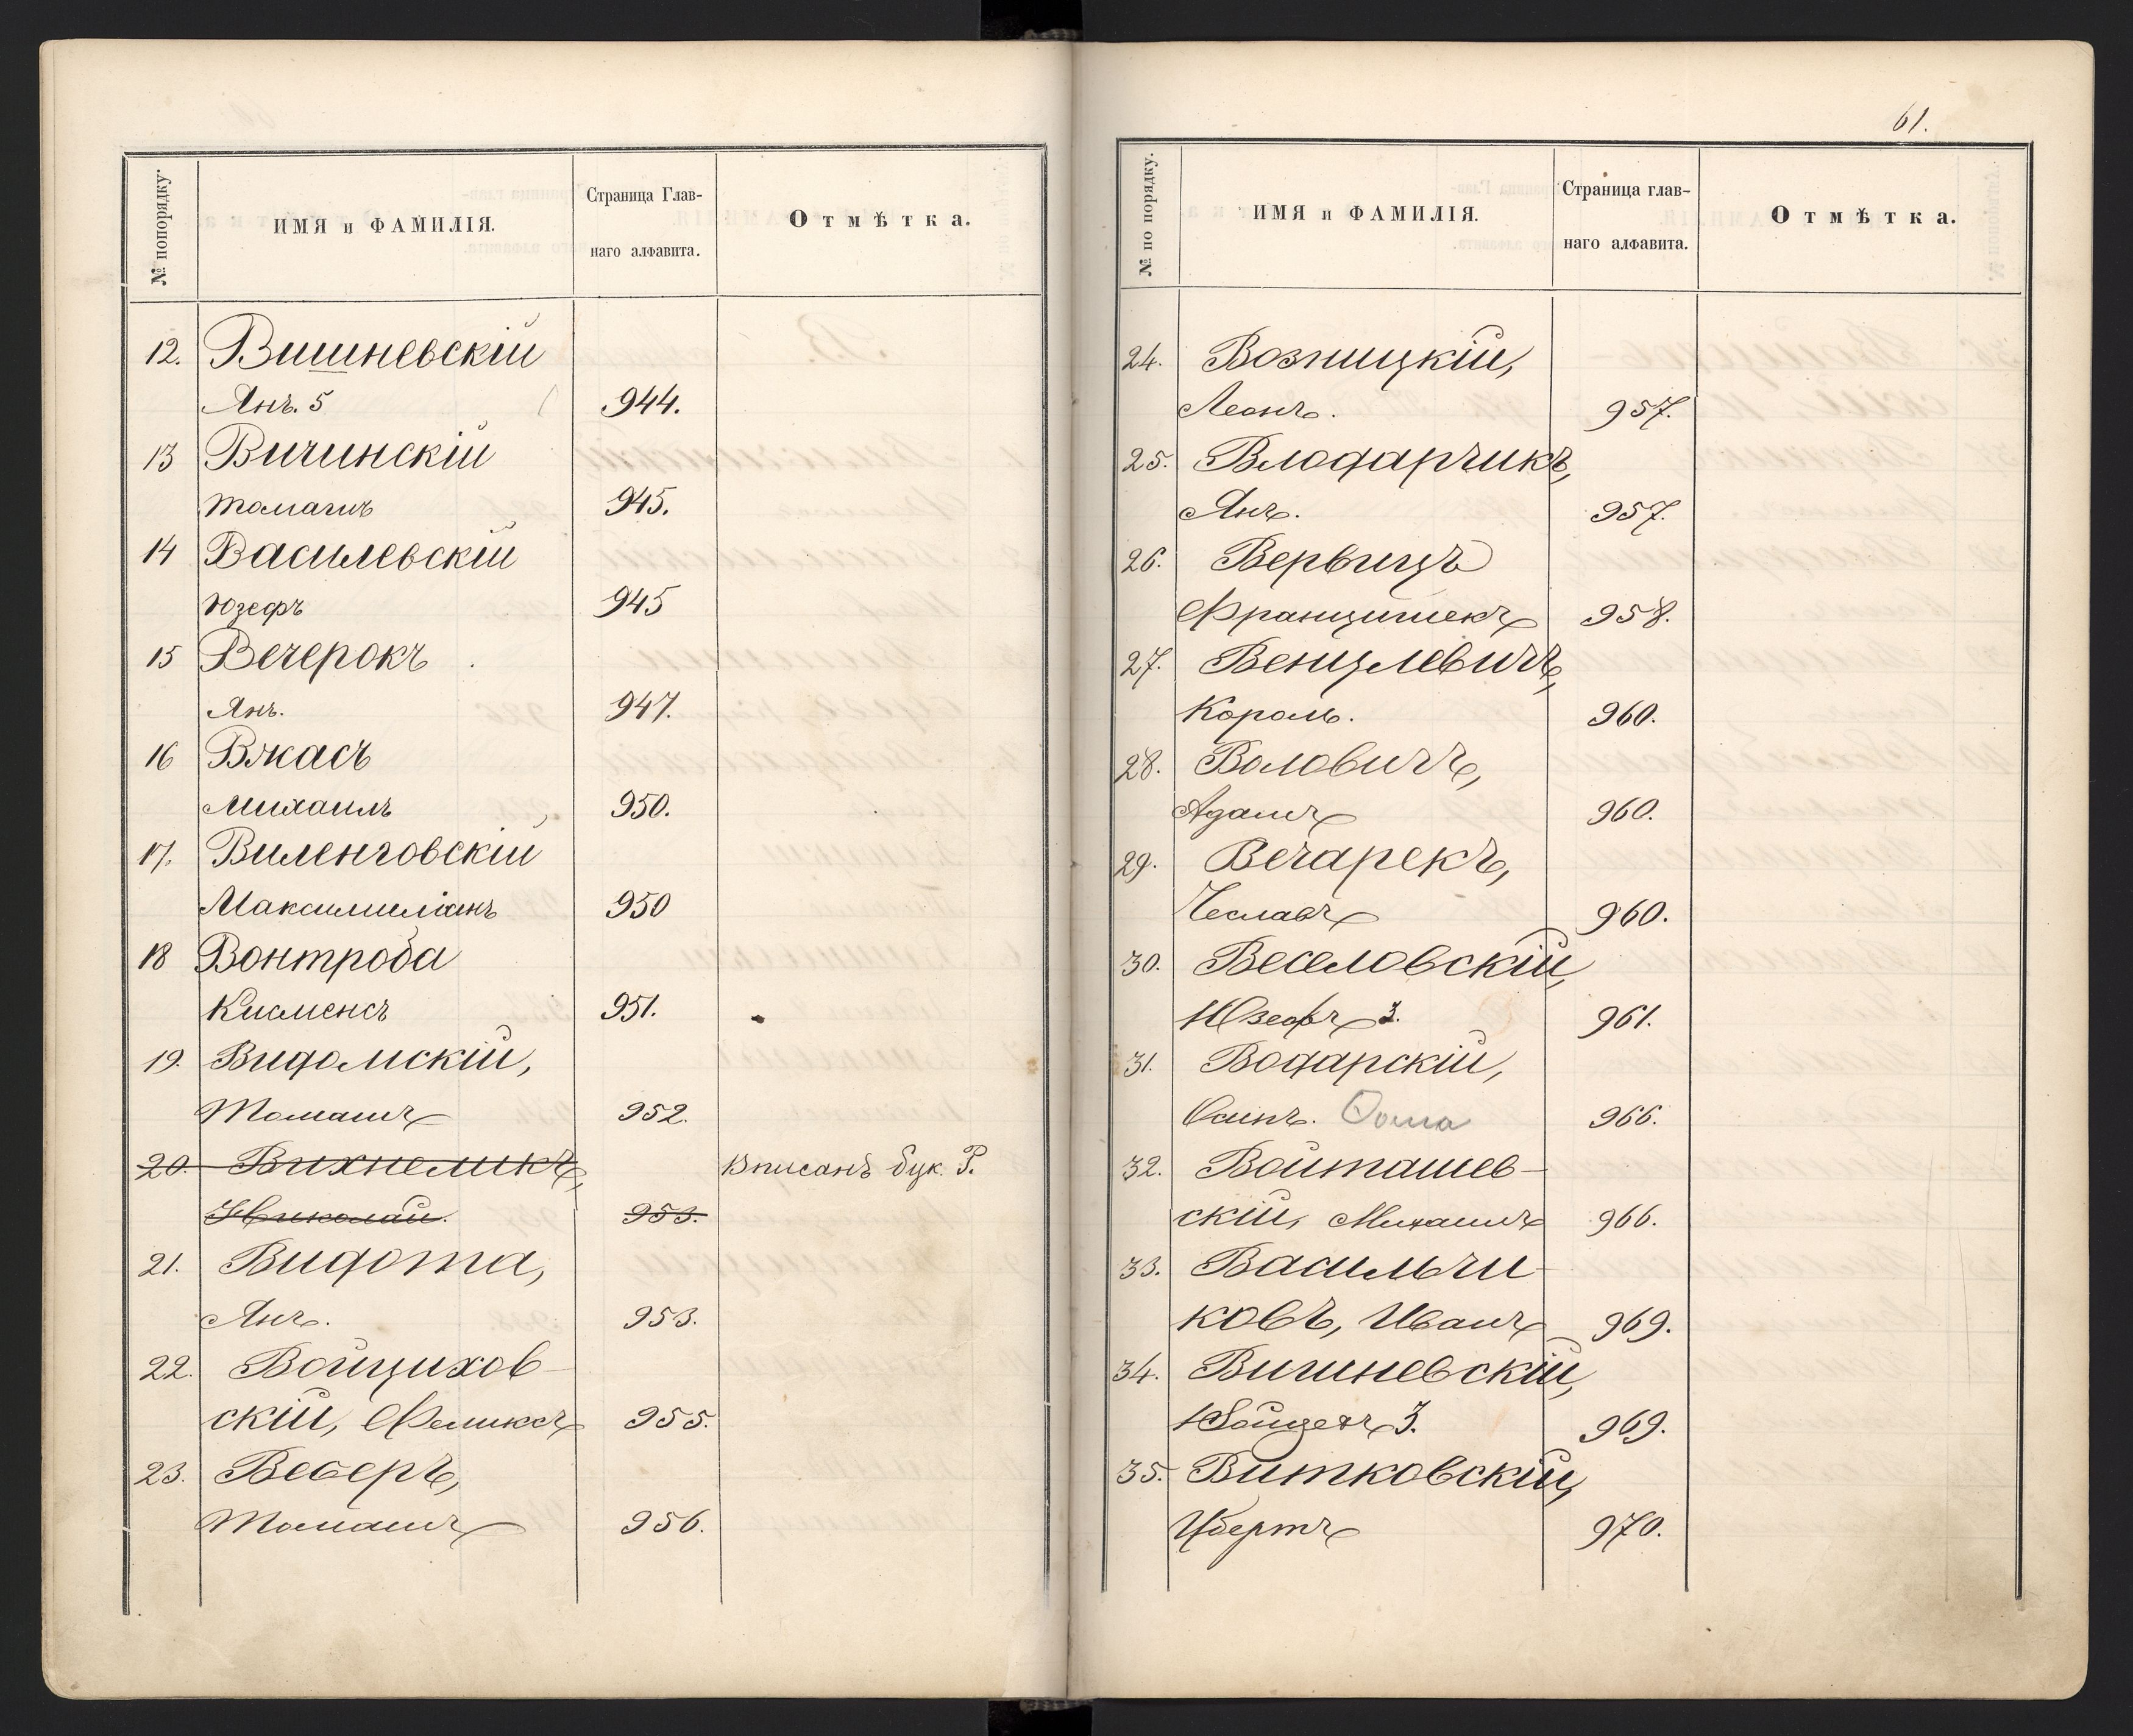 № попорядку.
ИМЯ и ФАМИЛІЯ.
Страница Глав-
наго алфавита.
Отмѣтка.
12. Вишневскій
Янъ. 5 944.
13 Вичинскій
Томашъ 945.
14 Василевскій
Юзефъ 945
15 Вечерокъ
Янъ. 947.
16 Вжасъ
Михаилъ 950.
17. Виленговскій
Максимиліанъ 950
18 Вонтроба
Клеменсъ 951.
19. Видомскій,
Томашъ 952.
20. Вихнеликъ, Вписанъ бук. Р.
Николай. 953.
21. Видота,
Янъ. 953.
22. Войцихов-
скій, Феликсъ 955.
23. Веберъ,
Томашъ 956.
61.
№ по порядку.
ИМЯ и ФАМИЛІЯ.
Страница глав-
наго алфавита.
Отмѣтка.
24. Возницкій,
Леонъ. 957.
25. Влодарчикъ,
Янъ. 957.
26. Вервицъ
Францишекъ 958.
27. Венцлевичъ,
Кароль. 960.
28. Воловичъ,
Адамъ 960.
29. Вечарекъ,
Чеславъ 960.
30. Веселовскій,
Юзефъ 3. 961.
31. Водарскій,
966.
32. Войташев-
скій, Михаилъ 966.
33. Васильчи-
ковъ, Иванъ 969.
34. Вишневскій,
3. 969.
35. Витковскій,
970.